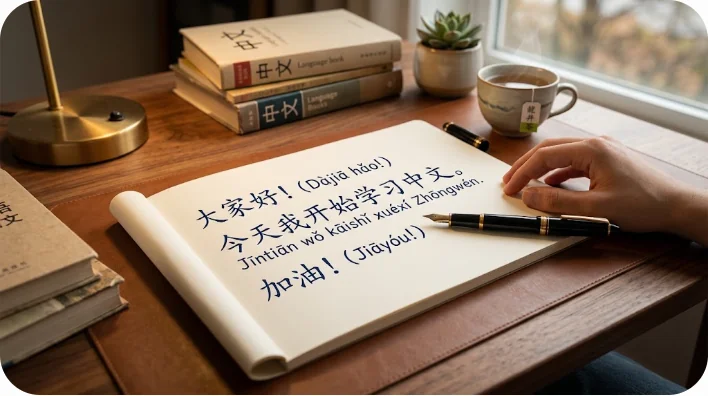 中文
Language book
中文
Language Books
大家好！(Dàjiā hǎo!)
今天我开始学习中文。
Jīntiān wǒ kāishǐ xuéxí Zhōngwén.
加油！(Jiāyóu!)